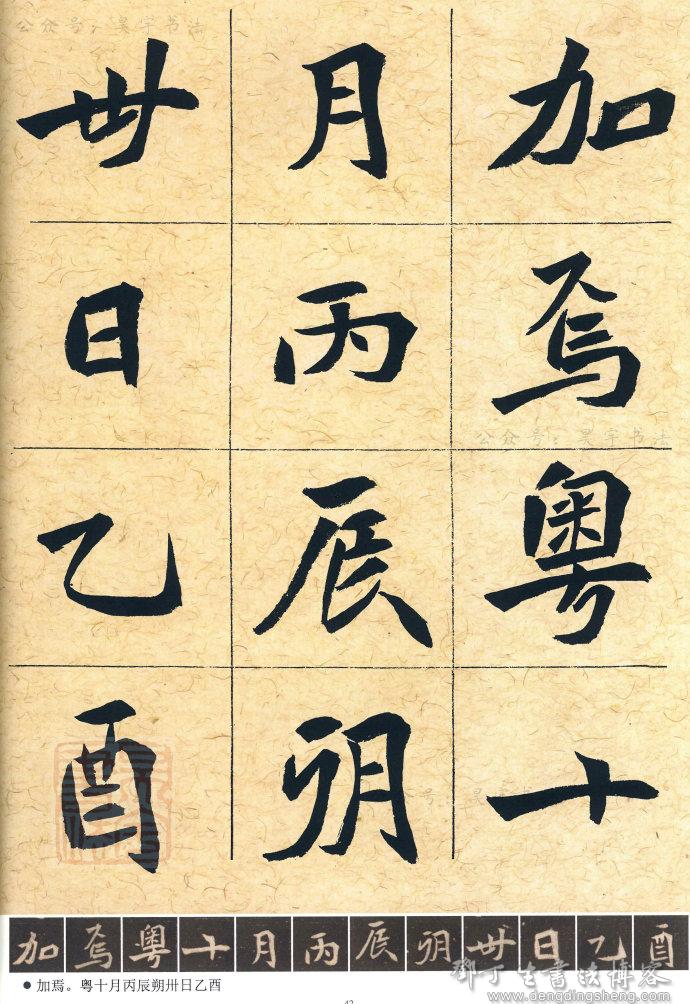 公众号：昊宇书法
加焉粤十
月丙辰朔
卅日乙酉
公众号：昊宇书法
加焉粤十月丙辰朔卅日乙酉
●加焉。粤十月丙辰朔卅日乙酉
42
邓丁生书法博客
www.dengdingsheng.com